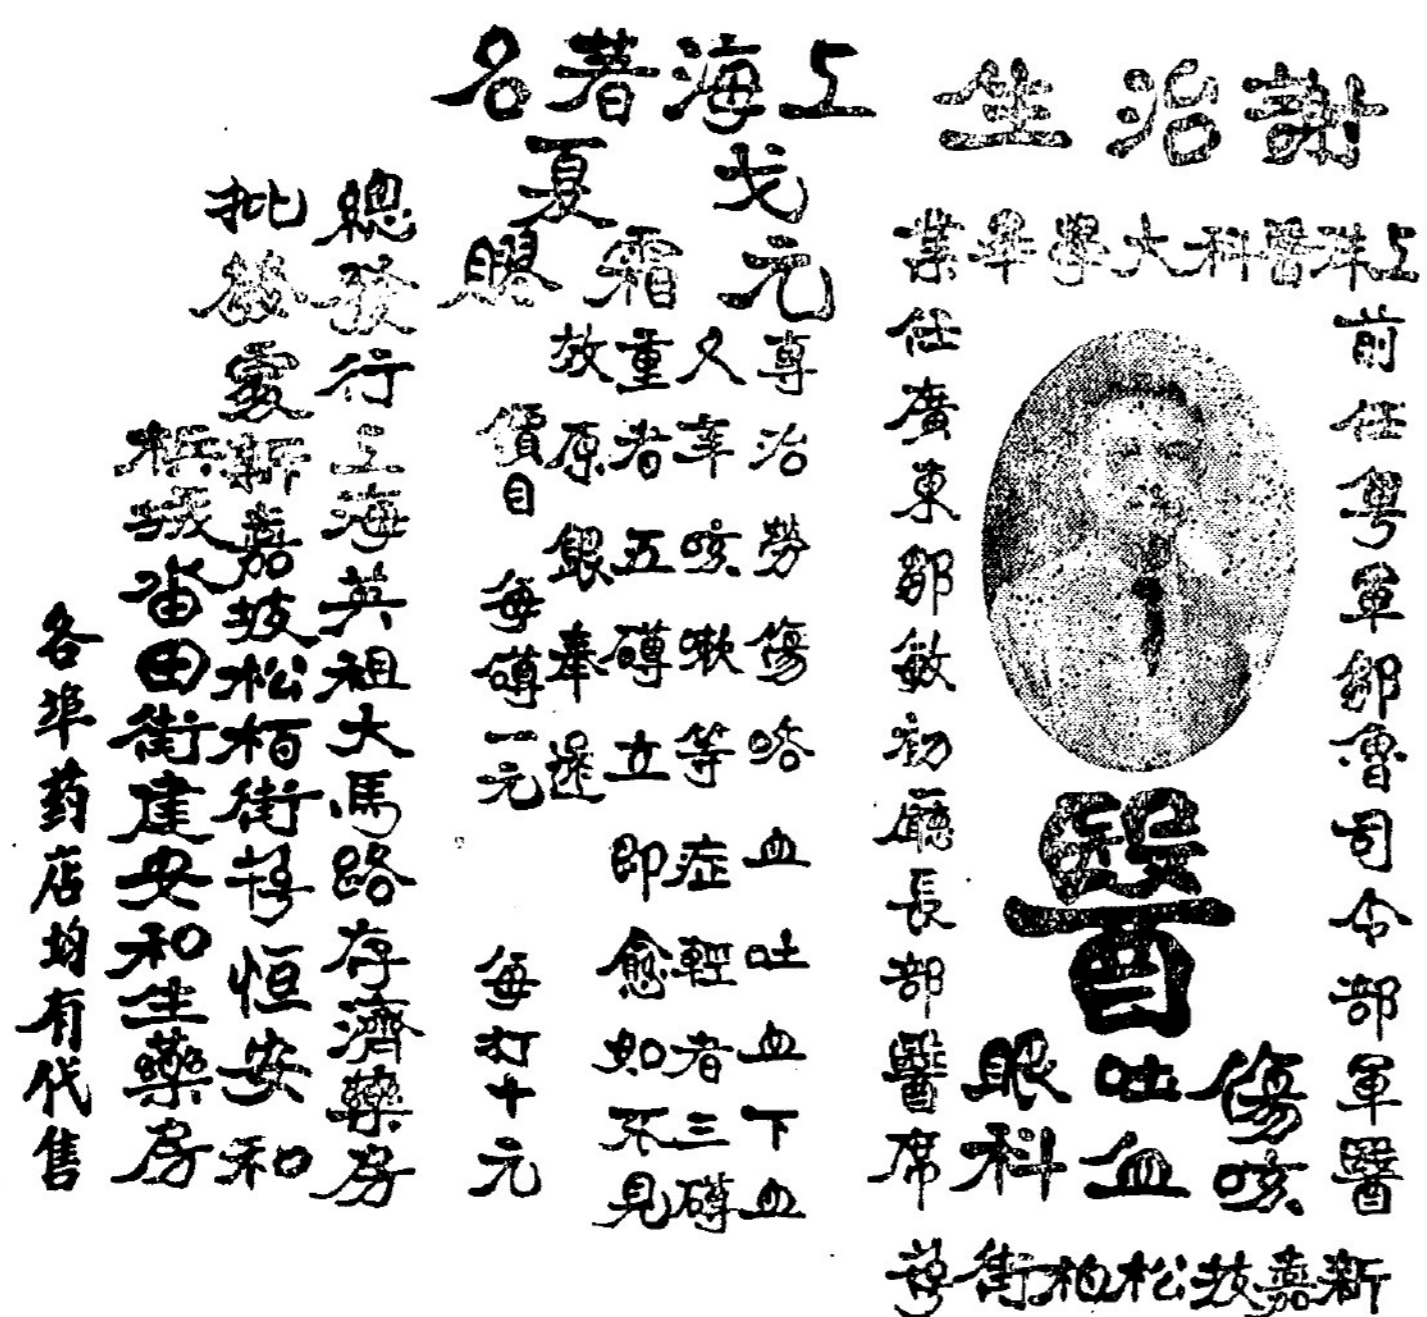 謝治生
上海醫科大學畢業
前任粵軍鄒魯司令部軍醫
任廣東鄒敏初廳長部醫席
醫
傷咳
吐血
眼科
新嘉坡松柏街
上海著名
戈元
夏霜膠
專治勞傷咯血吐血下血
久年咳嗽等症輕者三罇
重者五罇立即愈如不見
效原銀奉還
價目 每罇一元 每打十元
總發行上海英租大馬路存濟藥房
批發處新嘉坡松栢街恒安和
檳城畓田街建安和生藥房
各埠药店均有代售